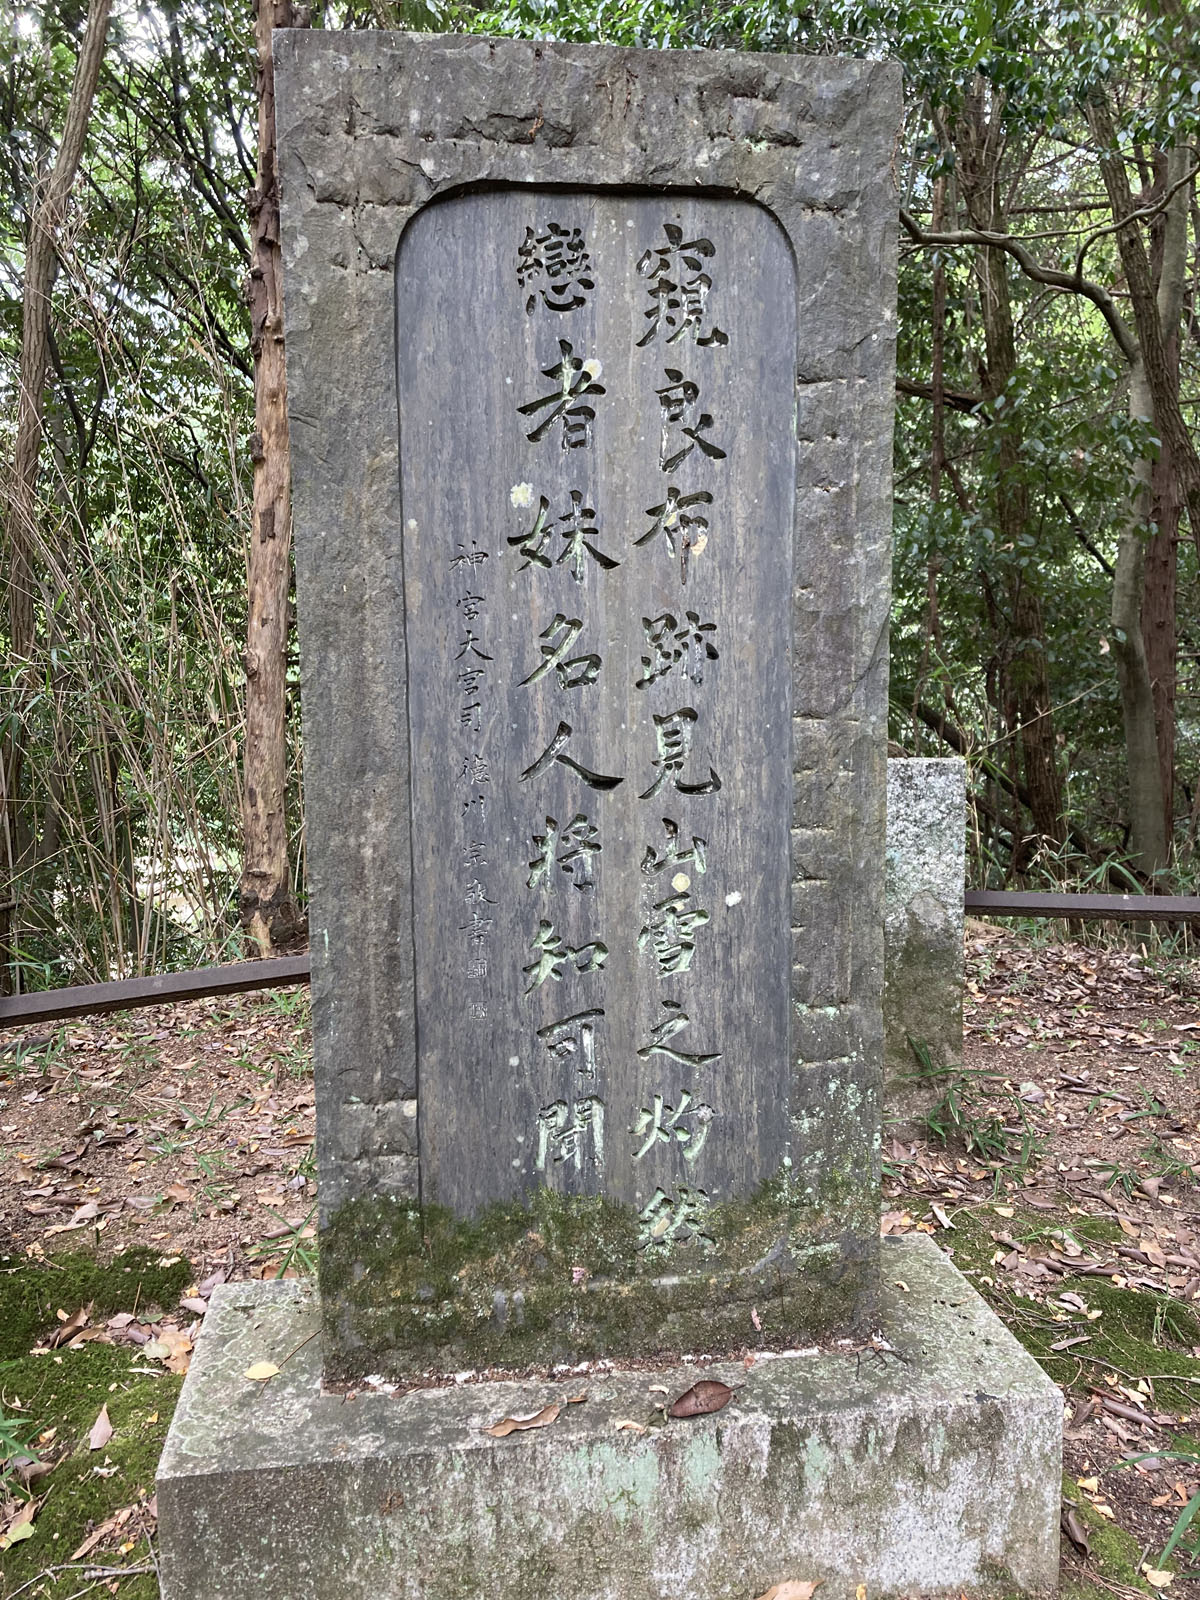 窺良布跡見山雪之灼然
戀者妹名人将知可聞
神宮大宮司 徳川宗敬書